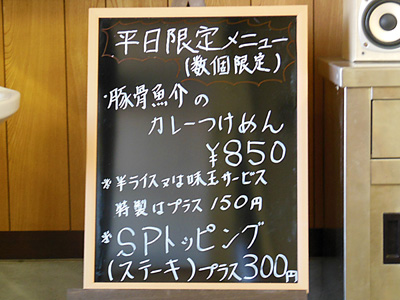 平日限定メニュー
(数個限定)
・豚骨魚介の
カレーつけめん
¥850
※半ライス又は味玉サービス
特製はプラス150円
※SPトッピング
(ステーキ)プラス300円